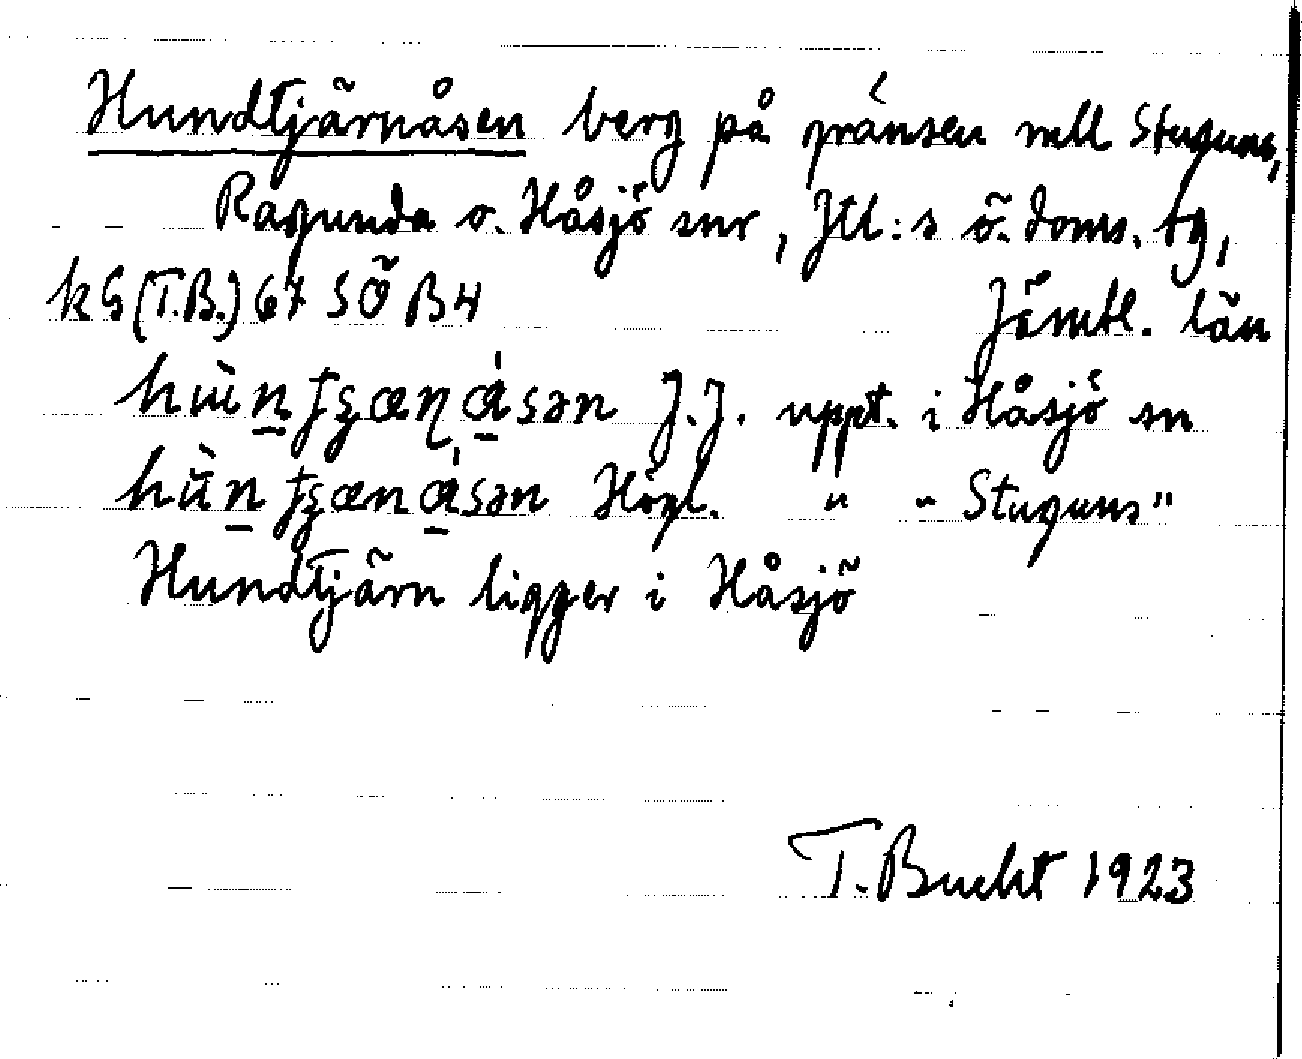 Hundtjärnåsen berg på gränsen mll Stuguns,
Ragunda o. Håsjö snr, Jtl:s ö. doms. tg,
kG (T.B.) 67 SÖ B4 Jämtl. län
J.J. uppt. i Håsjö sn
Högl. " " Stuguns "
Hundtjärn ligger i Håsjö
T. Bucht 1923